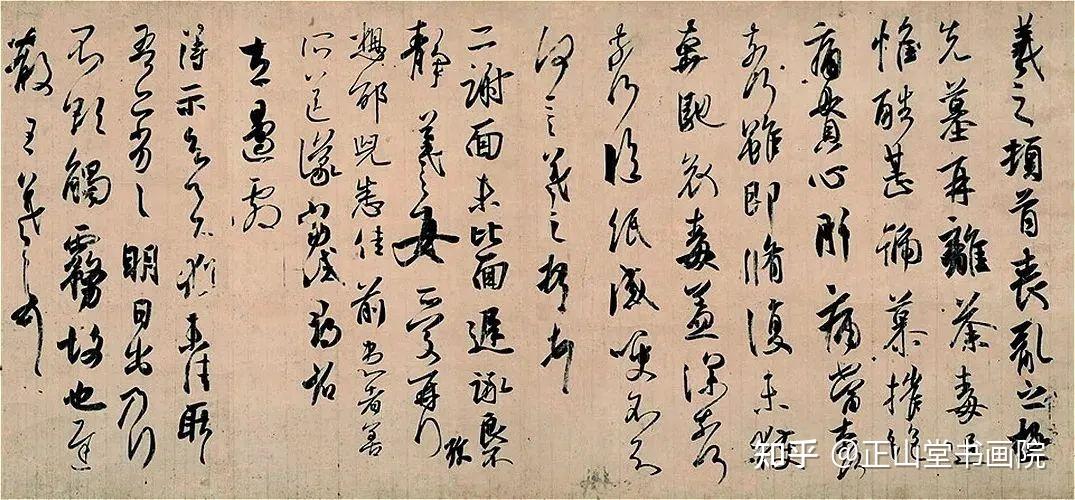 羲之頓首喪亂之極
先墓再離荼毒追
惟酷甚號慕摧絕
痛貫心肝痛當奈何
奈何雖即脩復未獲
奔馳哀毒益深奈何
奈何臨紙感哽不知
何言羲之頓首頓首
二謝面未比面遲詠良不
靜羲之女愛再拜
想邵兒悉佳前患者善
所送議當試尋省
左邊劇
得示知足下猶未佳耿耿
吾亦劣劣明日出乃行
不欲觸霧故也遲
散王羲之頓首
知乎 @正山堂书画院